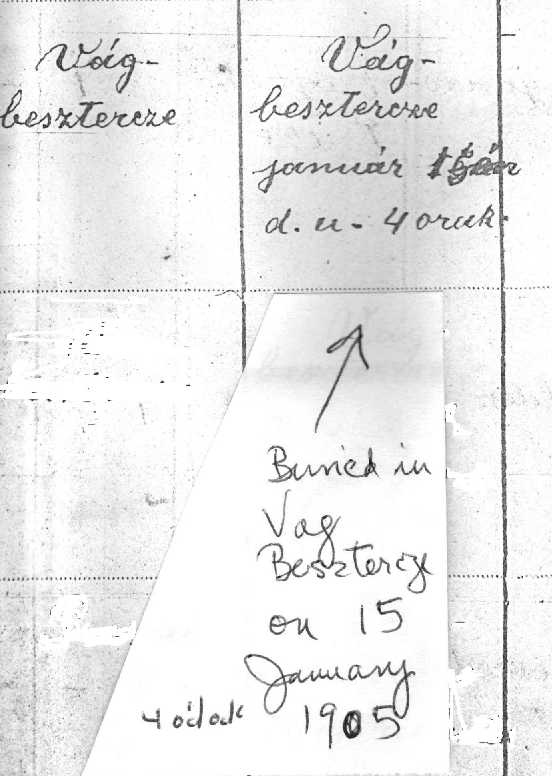 Vág-
besztercze
Vág-
besztercze
január 15én
d. u. - 4 oruk.
Buried in
Vag
Besztercze
on 15
January
1905
4 o'clock